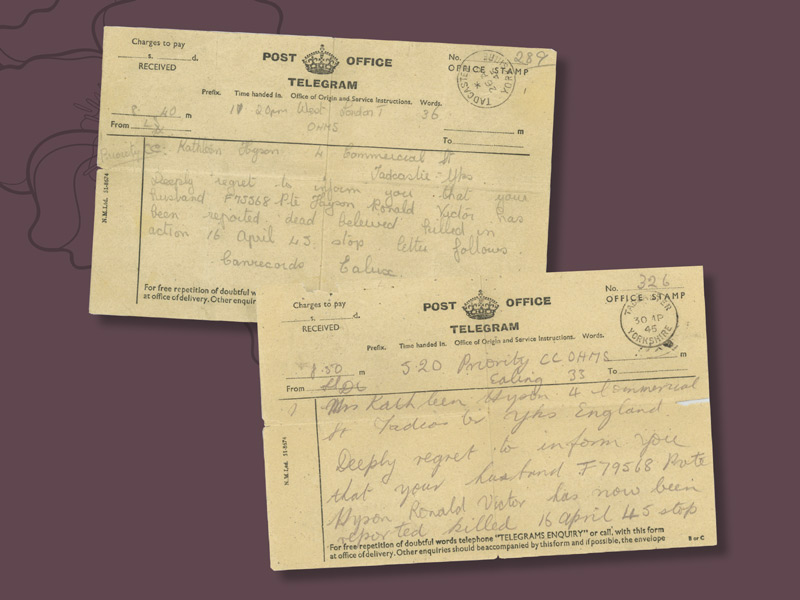 Charges to pay
s. d.
RECEIVED
POST OFFICE
TELEGRAM
No. 289
OFFICE STAMP
TADCASTER
Prefix. Time handed in. Office of Origin and Service Instructions. Words.
8 40 m
20pm West London T 36
OHMS
From
To
m
Priority CC Kathleen Hyson 4 Commercial St
Tadcaster Yks
Deeply regret to inform you that your
husband F79568 Pte Hyson Ronald Victor has
been reported dead beleived killed in
action 16 April 45 stop letter follows
Canrecords Ealux
N.M.Ltd. 51-8674
For free repetition of doubtful w
at office of delivery. Other enquir
Charges to pay
s. d.
RECEIVED
POST OFFICE
TELEGRAM
No. 326
OFFICE STAMP
TADCASTER
30 AP
45
YORKSHIRE
Prefix. Time handed in. Office of Origin and Service Instructions. Words.
8.50 m
5.20 Priority CC OHMS
Ealing 33
From
To
m
Mrs Kathleen Hyson 4 Commercial
St Tadcaster Yks England
Deeply regret to inform you
that your husband F79568 Pvte
Hyson Ronald Victor has now been
reported killed 16 April 45 stop
N.M.Ltd. 51-8674
For free repetition of doubtful words telephone "TELEGRAMS ENQUIRY" or call, with this form
at office of delivery. Other enquiries should be accompanied by this form and if possible, the envelope
B or C